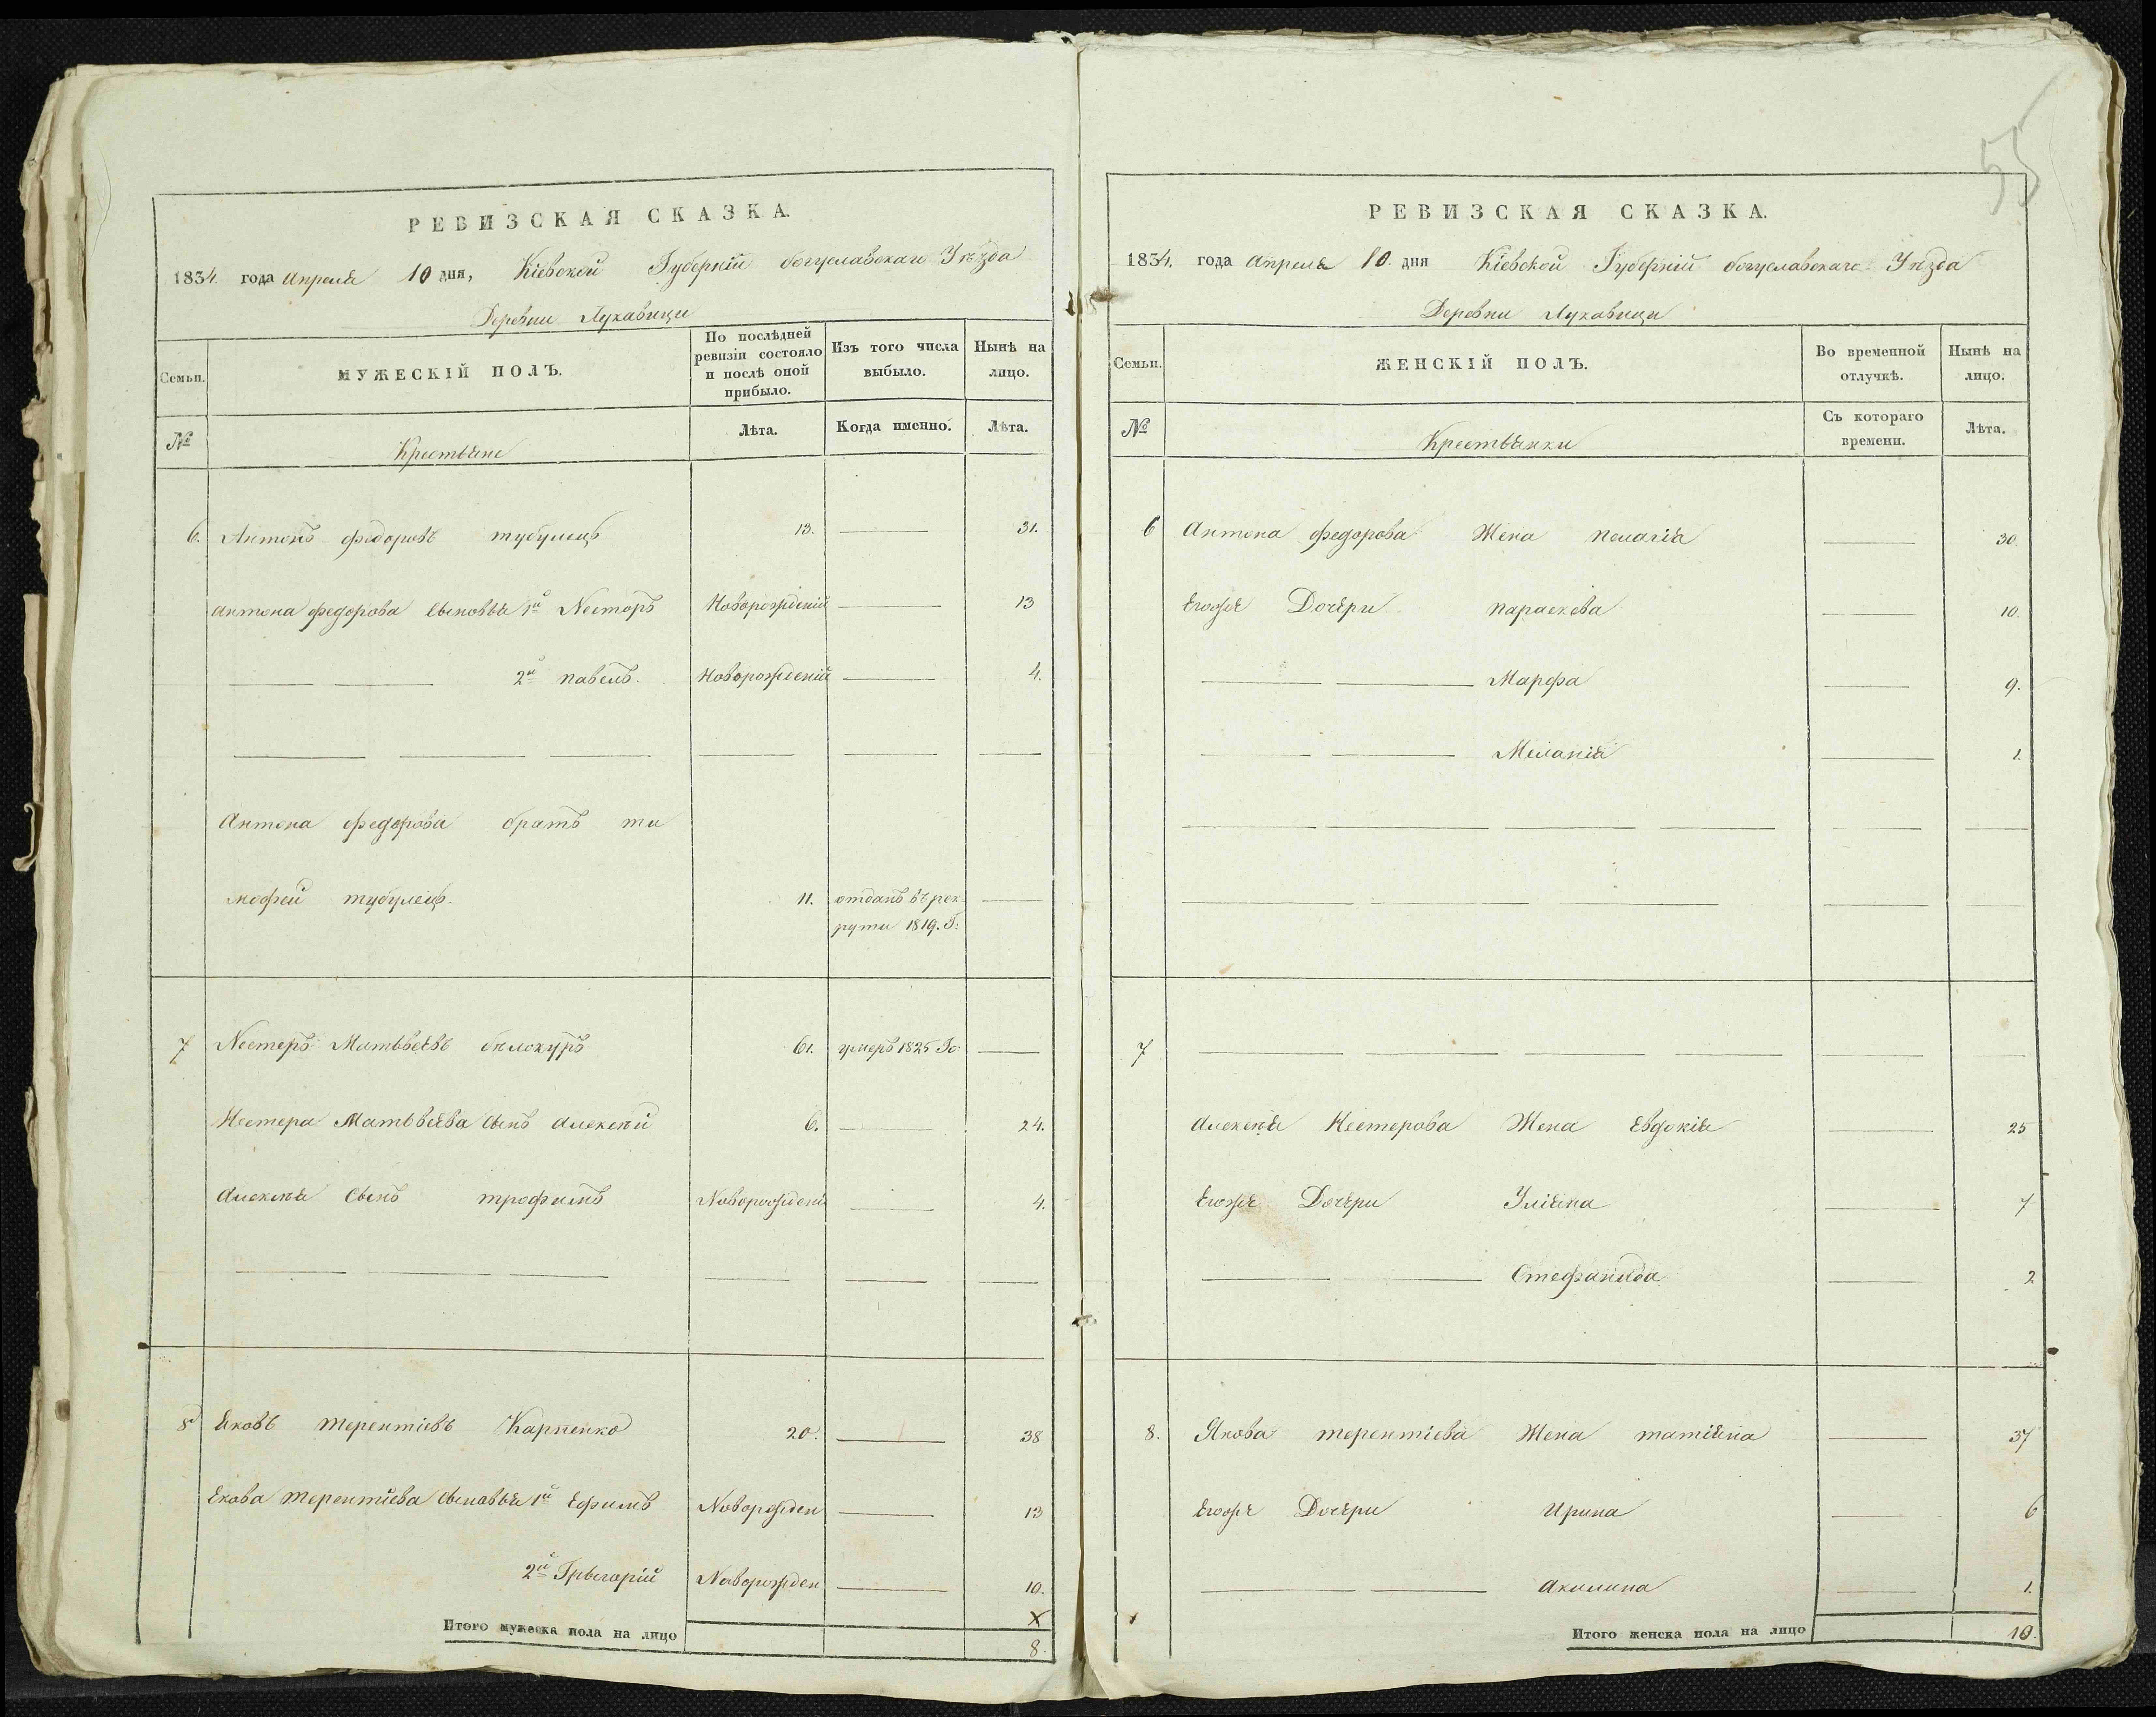 55
РЕВИЗСКАЯ СКАЗКА.
1834. года Апреля 10 дня, Кіевской Губерніи богуславскаго Уѣзда
Деревни Лукавици
Семьи.
МУЖЕСКІЙ ПОЛЪ.
По послѣдней ревизіи состояло и послѣ оной прибыло.
Изъ того числа выбыло.
Нынѣ на лицо.
№
Крестьяне
Лѣта.
Когда именно.
Лѣта.
6. Антонъ федоровъ тубулецъ 13. 31.
Антона федорова сыновья 1й Несторъ Новорожденій 13
2й павелъ. Новорожденій 4.
Антона федорова братъ ти
мофей тубулецъ 11. отданъ въ рек
рути 1819. Г:
7 Нестеръ Матвѣевъ бѣлокуръ 61. умеръ 1825 Го
Нестера Матвѣева сынъ Алексѣй 6. 24.
Алексѣя Сынъ трофимъ Новорожденій 4.
8 Яковъ терентіевъ Карпенко 20. 38
Якова терентіева сыновья 1й Ефимъ Новорожден 13
2й Грыгорій Новорожден 10.
Итого мужеска пола на лицо 8.
РЕВИЗСКАЯ СКАЗКА.
1834. года Апреля 10. дня Кіевской Губерній богуславскаго Уѣзда
Деревни Лукавици
Семьи.
ЖЕНСКІЙ ПОЛЪ.
Во временной отлучкѣ.
Нынѣ на лицо.
№
Крестьянки
Съ котораго времени.
Лѣта.
6 Антона федорова Жена пелагія 30.
Егоже Дочери параскева 10.
Марфа 9.
Меланія 1.
7
Алексѣя Нестерова Жена Евдокія 25
Егоже Дочери Уліяна 7
Стефанида 2
8. Якова терентіева Жена татіяна 37
Егоже Дочери Ирина 6
Акилина 1.
Итого женска пола на лицо 10.